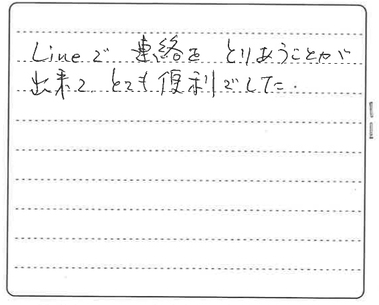 Lineで 連絡を とりあうことが
出来て とても便利でした.